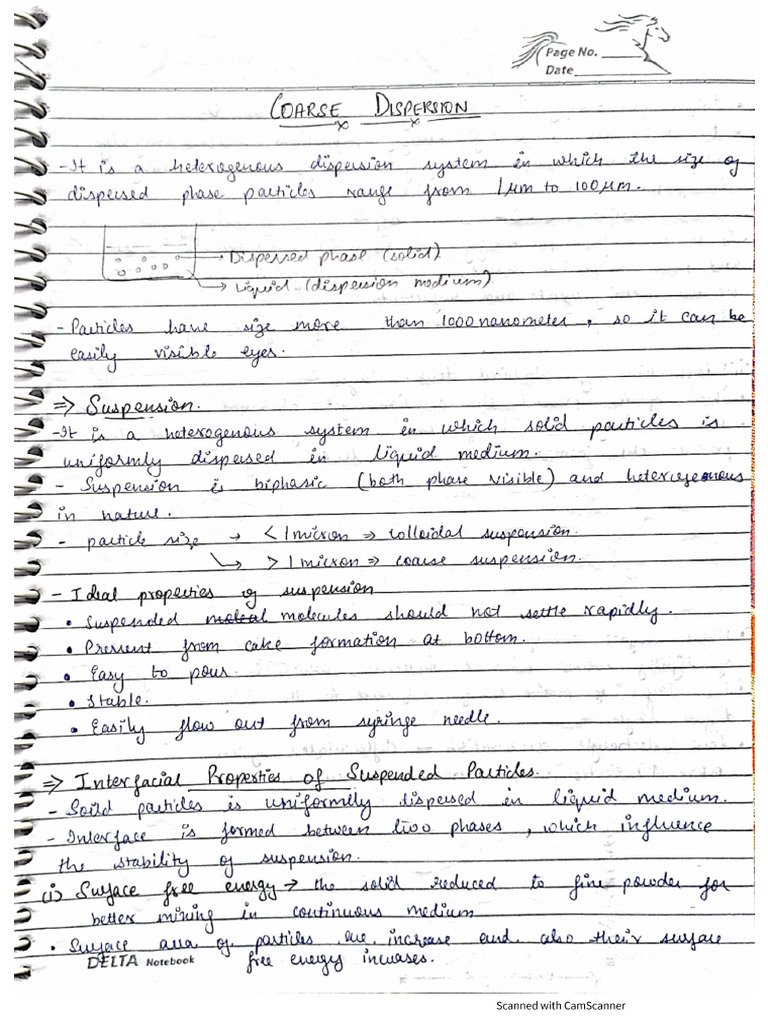 Page No.
Date
COARSE DISPERSION
- It is a heterogenous dispersion system in which the size of
dispersed phase particles range from 1µm to 100µm.
→ Dispersed phase (solid)
→ Liquid (dispersion medium)
- Particles have size more than 1000 nanometer, so it can be
easily visible eyes.
⇒ Suspension.
- It is a heterogenous system in which solid particles is
uniformly dispersed in liquid medium.
- Suspension is biphasic (both phase visible) and heterogenous
in nature.
- particle size → < 1 micron ⇒ colloidal suspension.
↳ > 1 micron ⇒ coarse suspension.
- Ideal properties of suspension
• Suspended molecules should not settle rapidly.
• Pressent from cake formation at bottom.
• Easy to pour.
• Stable.
• Easily flow out from syringe needle.
⇒ Interfacial Properties of Suspended Particles.
- Soild particles is uniformlly dispersed in liquid medium.
- Interface is formed between two phases, which influence
the stability of suspension.
(i) Surface free energy → the solid reduced to fine powder for
better mixing in continuous medium
• Surface area of particles are increase and also their surface
free energy increases.
DELTA Notebook
Scanned with CamScanner